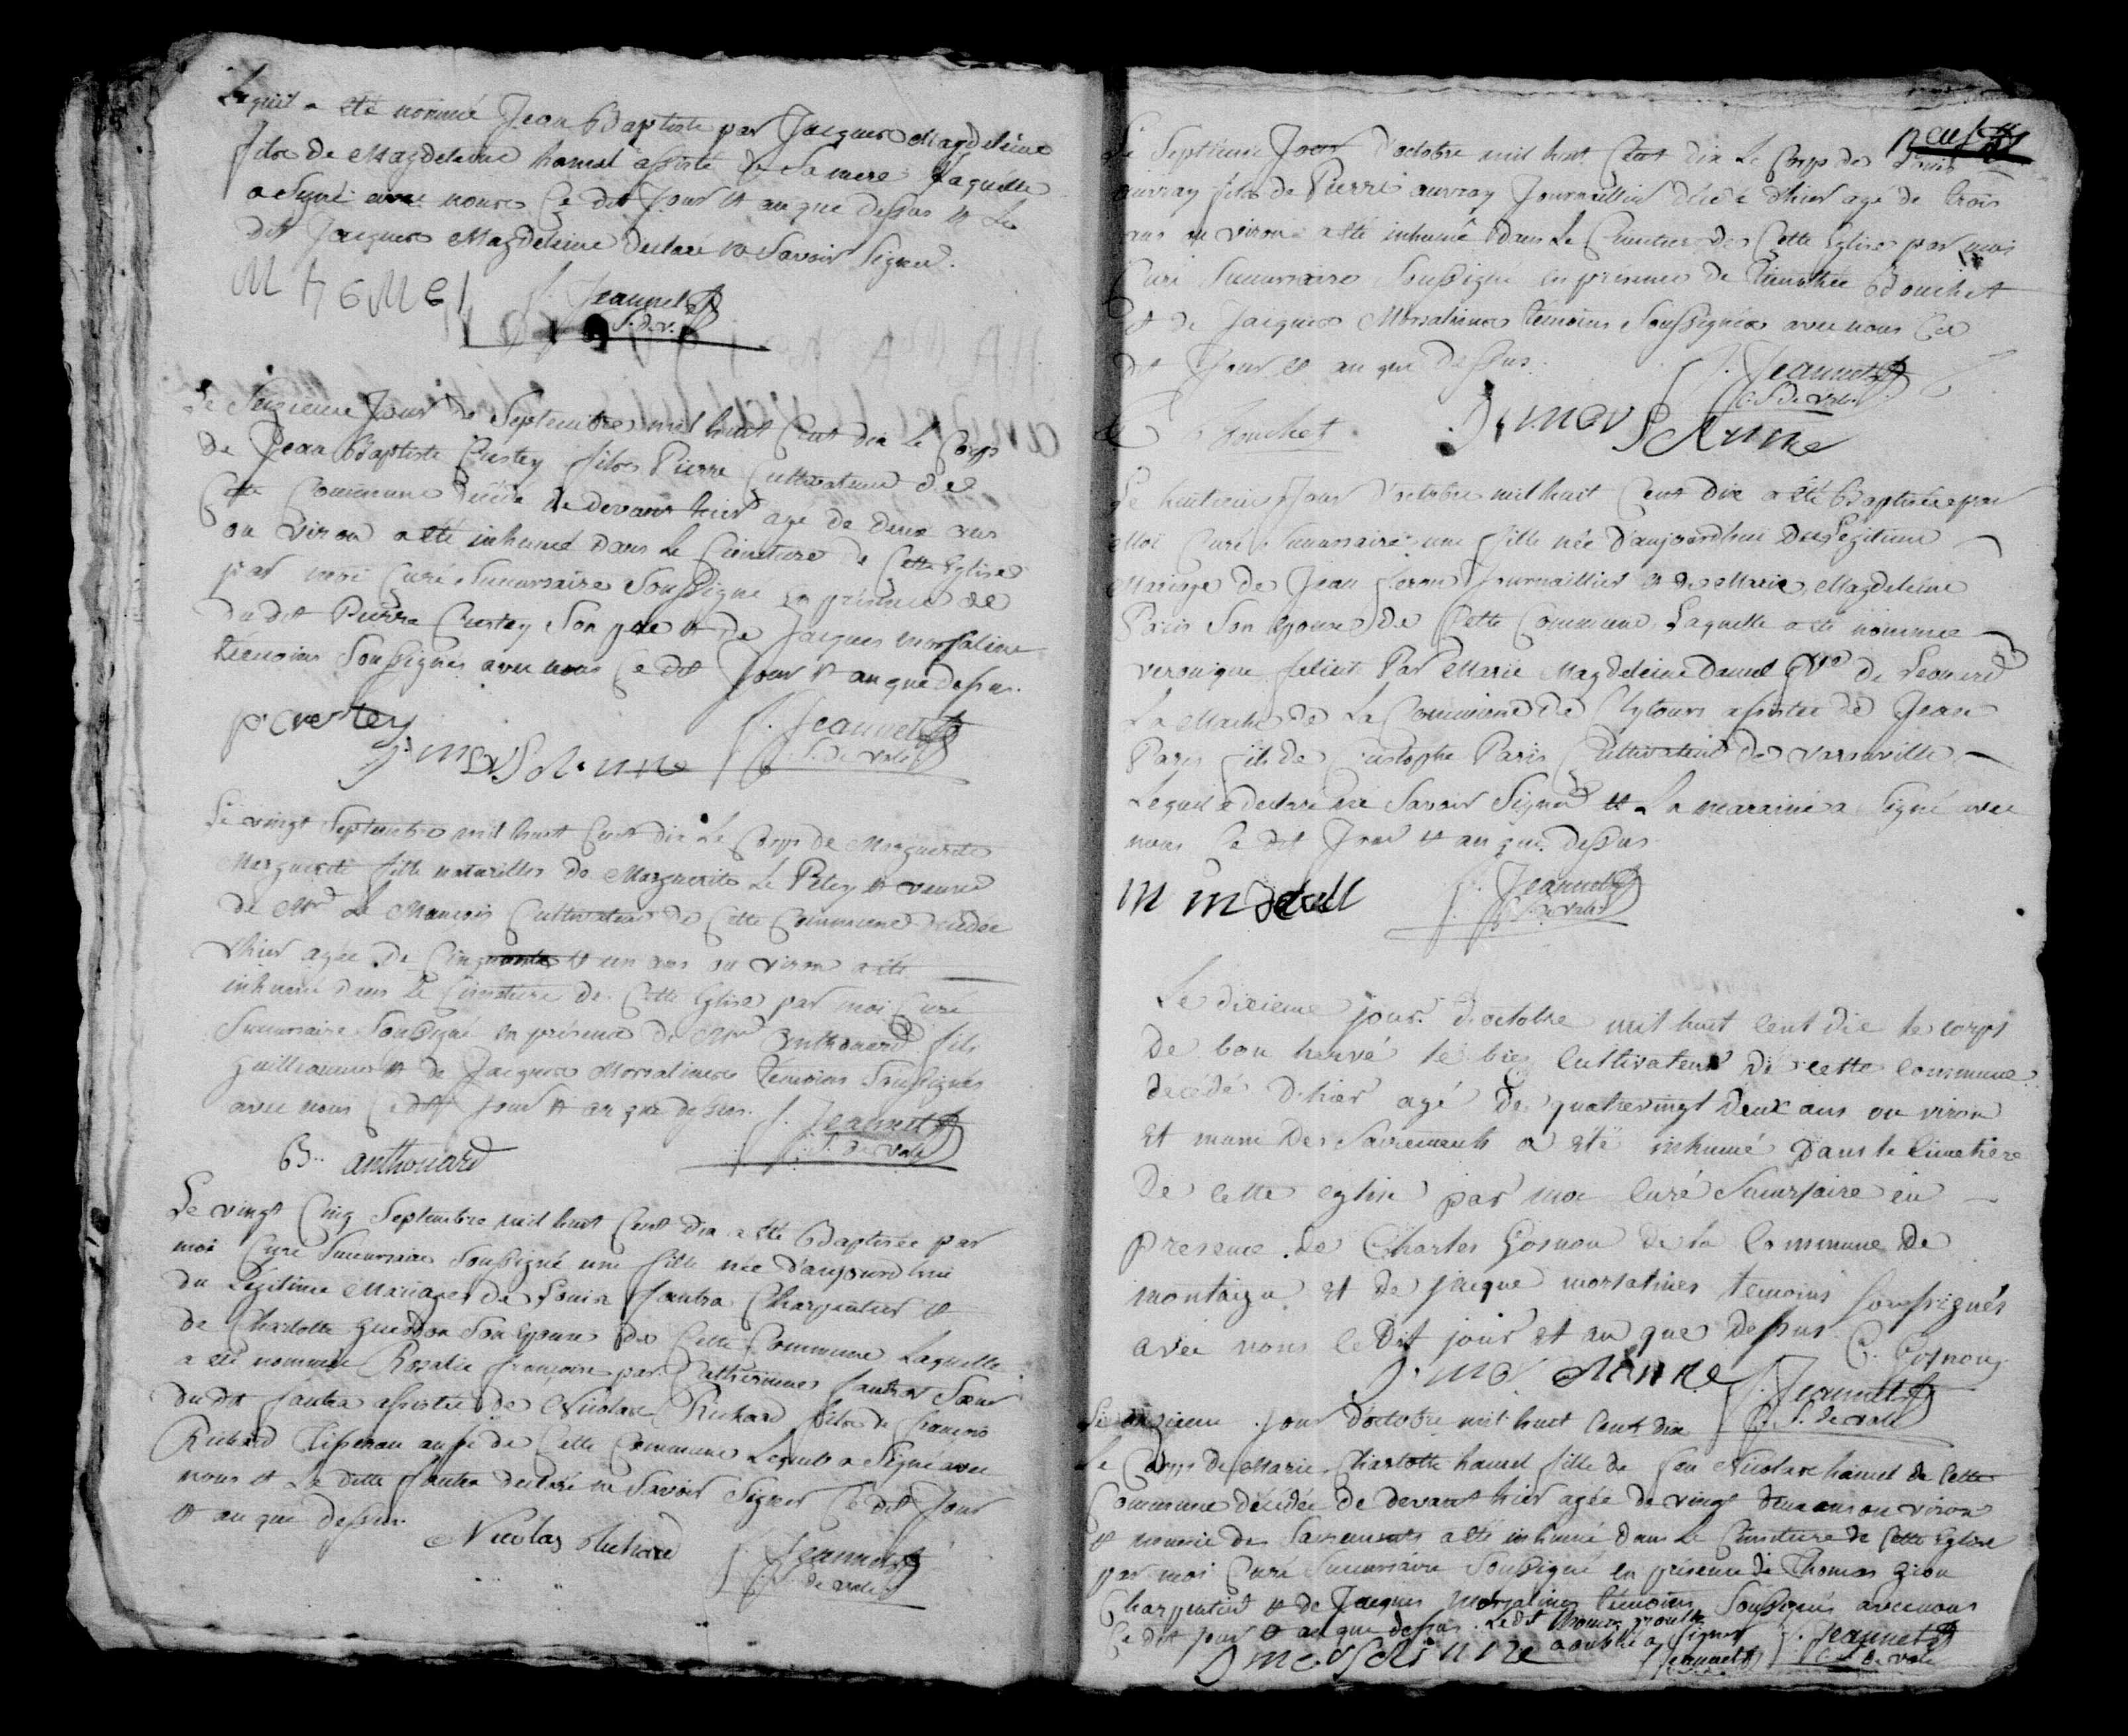 Lequel a été nommé Jean Baptiste par Jacques Magdeleine
fils de Magdeleine hamel assisté de Sa mere Laquelle
a Signé avec nous Ce dit Jour et an que dessus et Le
dit Jacques Magdeleine declaré ne Savoir Signer.
M HAMEL
Jeannet
Le Seizieme Jour de Septembre mil huit Cent dix Le Corps
de Jean Baptiste Crestey fils Pierre Cultivateur de
Cette Commune décédé de devant hier agé de deux ans
ou viron a été inhumé dans Le Cimetiere de Cette Eglise
par moi Curé Succursaire Soussigné en présence de
du dit Pierre Crestey Son pere et de Jacques morsaline
témoins Soussignés avec nous Ce dit Jour et an que dessus.
p. crestey
Jeannet
Le vingt Septembre mil huit Cent dix Le Corps de Marguerite
Marguerite fille naturelle de Marguerite Le Petey et veuve
de Mr Le Cultivateur de Cette Commune décédée
d'hier agée de Cinquante et un ans ou viron a été
inhumé dans Le Cimetiere de Cette Eglise par moi Curé
Succursaire Soussigné en présence de Mr Anthouard fils
Guillaume et de Jacques Morsalines témoins Soussignés
avec nous Ce dit Jour et an que dessus.
Jeannet
B. anthouard
Le vingt Cinq Septembre mil huit Cent dix a été Baptisée par
moi Curé Succursaire Soussigné une fille née d'aujourd'hui
du Légitime Mariage de Louis fautra Charpentier et
de Charlotte Son Epouse de Cette Commune Laquelle
a été nommée Rosalie françoise par Catherinne fautra Soeur
du dit fautra assistée de Nicolas Richard fils de françois
Richard aussi de Cette Commune Lequel a Signé avec
nous et La ditte fautra declaré ne Savoir Signer Ce dit Jour
et an que dessus.
Nicolas Richard
Jeannet
Le Septieme Jour d'octobre mil huit Cent dix Le Corps de Louis
auvray fils de Pierre auvray Journaillier décédé d'hier agé de trois
ans ou viron a été inhumé dans Le Cimetiere de Cette Eglise par moi
Curé Succursaire Soussigné en présence de Timothée Bouchet
et de Jacques Morsalines témoins Soussignés avec nous Ce
dit Jour et an que dessus.
Jeannet
Bouchet
Le huitieme Jour d'octobre mil huit Cent dix a été Baptisée par
Moi Curé Succursaire une fille née d'aujourd'hui du Légitime
Mariage de Jean Journaillier et de Marie Magdeleine
Paris Son Epouse de Cette Commune Laquelle a été nommée
veronique Par Marie Magdeleine de Leonard
La de La Commune de assistée de Jean
Paris fils de Cristophe Paris Cultivateur de
Lequel a declaré ne Savoir Signer et La maraine a Signé avec
nous Ce dit Jour et an que dessus
Jeannet
Le dixieme jour d'octobre mil huit cent dix le corps
De bon hervé le bieg Cultivateur De cette commune
decédé D'hier agé De quatrevingt Deux ans ou viron
et muni Des Sacrements a été inhumé Dans le Cimetiere
De cette eglise par moi Curé Succursaire en
presence De Charles Gosnou De la Commune De
montaigu et De jacque morsalines temoins Soussignés
avec nous ce Dit jour et an que Dessus
C. Gosnou
Jeannet
Le onzieme Jour d'octobre mil huit Cent dix
Le Corps de Marie Charlotte hamel fille de feu Nicolas hamel de Cette
Commune décédée de devant hier agée de vingt deux ans ou viron
et munie des Sacrements a été inhumé dans Le Cimetiere de Cette Eglise
par moi Curé Succursaire Soussigné en présence de Thomas
Charpentier et de Jacques Morsalines témoins Soussignés avec nous
Ce dit Jour et an que dessus. Le dit Thomas
a oublié a Signer
Jeannet
Jeannet